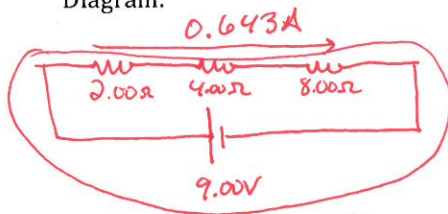 Diagram:
0.643A
2.00Ω 4.00Ω 8.00Ω
9.00V